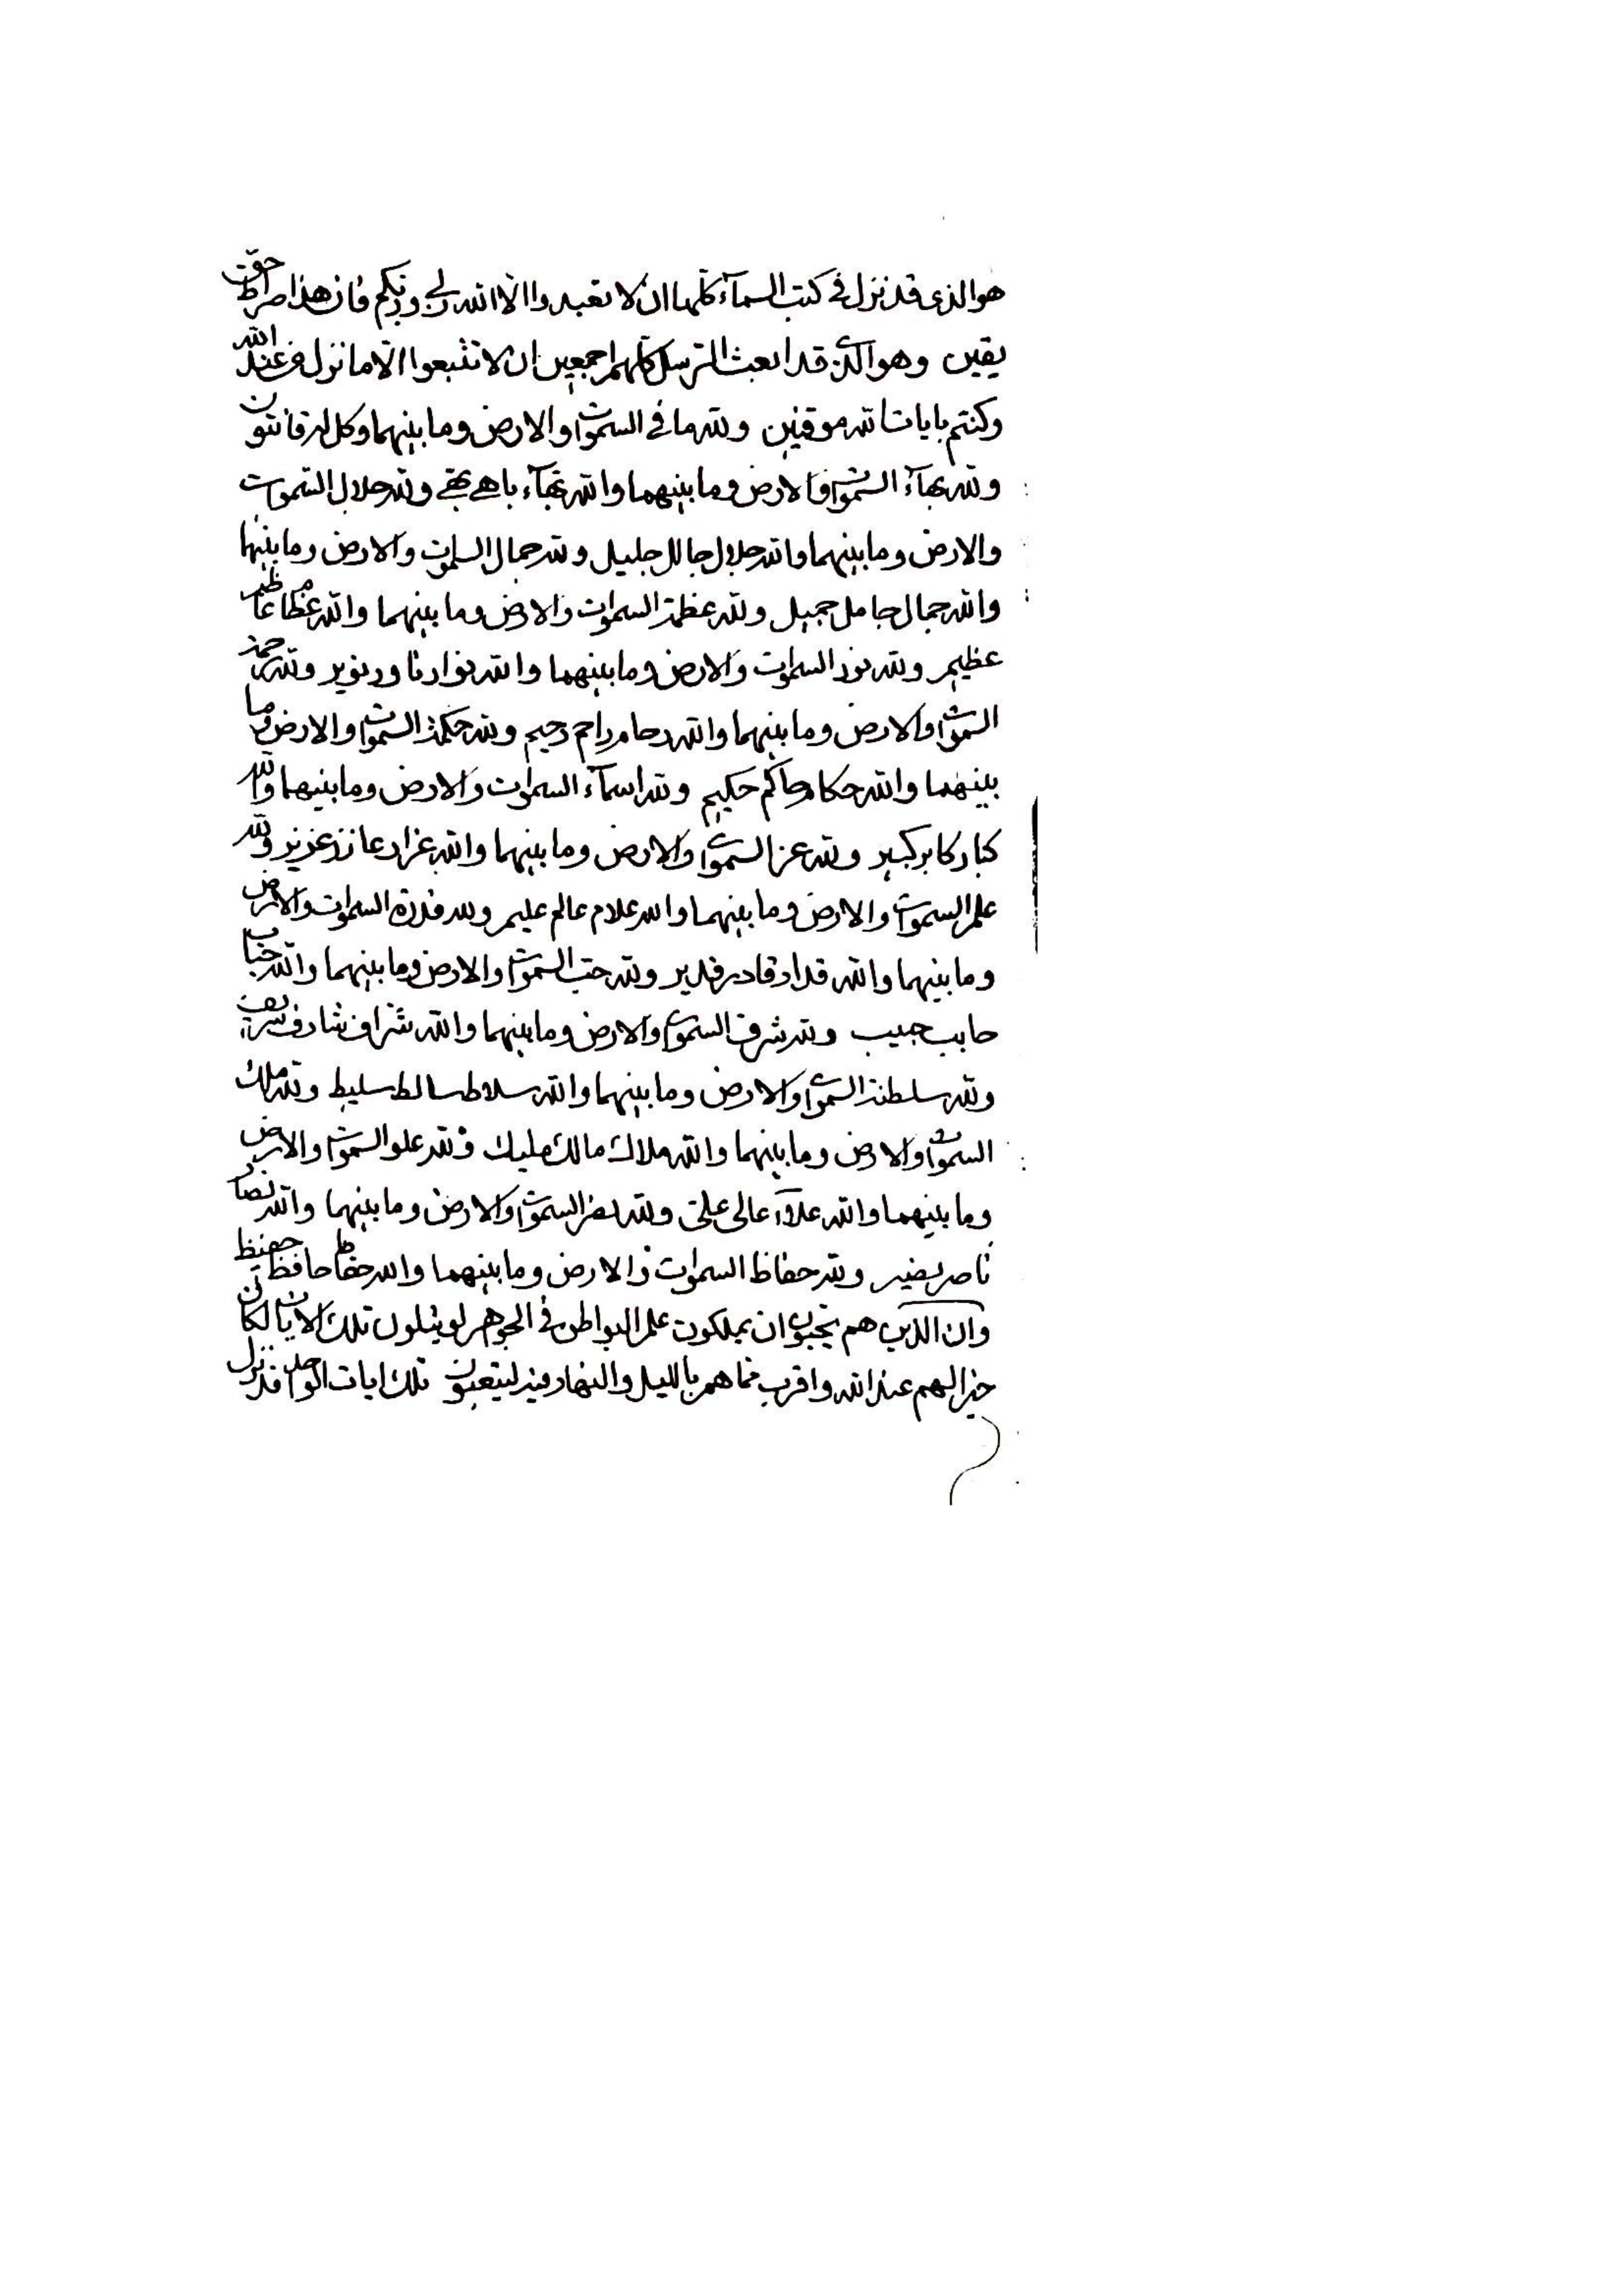 هو الذی قد نزل فی کتب السمآء کلها ان لا تعبدوا الا الله ربی و ربکم فان هذا صراط حق
یقین و هو الذی قد ابعث الرسل کلهم اجمعین ان لا تتبعوا الا ما نزل من عند الله
و کنتم بایات الله موقنین و لله ما فی السموات و الارض و ما بینهما و کل له قانتون
و لله بهآء السموات و الارض و ما بینهما و الله بهآء باهی بهی و لله جلال السموات
و الارض و ما بینهما و الله جلال جالل جلیل و لله جمال السموات و الارض و ما بینهما
و الله جمال جامل جمیل و لله عظمة السموات و الارض و ما بینهما و الله عظام عاظم
عظیم و لله نور السموات و الارض و ما بینهما و الله نوار ناور نویر و لله رحمة
السموات و الارض و ما بینهما و الله رحام راحم رحیم و لله حکمة السموات و الارض و ما
بینهما و الله حکام حاکم حکیم و لله اسمآء السموات و الارض و ما بینهما و الله
کبار کابر کبیر و لله عز السموات و الارض و ما بینهما و الله عزاز عازز عزیز و لله
علم السموات و الارض و ما بینهما و الله علام عالم علیم و لله قدرة السموات و الارض
و ما بینهما و الله قدار قادر قدیر و لله حب السموات و الارض و ما بینهما و الله حباب
حابب حبیب و لله شرف السموات و الارض و ما بینهما و الله شراف شارف شریف
و لله سلطنة السموات و الارض و ما بینهما و الله سلاط سالط سلیط و لله ملک
السموات و الارض و ما بینهما و الله ملاک مالک ملیک و لله علو السموات و الارض
و ما بینهما و الله علآء عالی علی و لله نصر السموات و الارض و ما بینهما و الله نصار
ناصر نصیر و لله حفاظ السموات و الارض و ما بینهما و الله حفاظ حافظ حفیظ
و ان الذین هم یحبون ان یملکون علم البواطن فی الجوهر لو یتلون تلک الایات لکان
خیرا لهم عند الله و اقرب مما هم باللیل و النهار فیه لیتعبون تلک ایات الواحد قد نزل